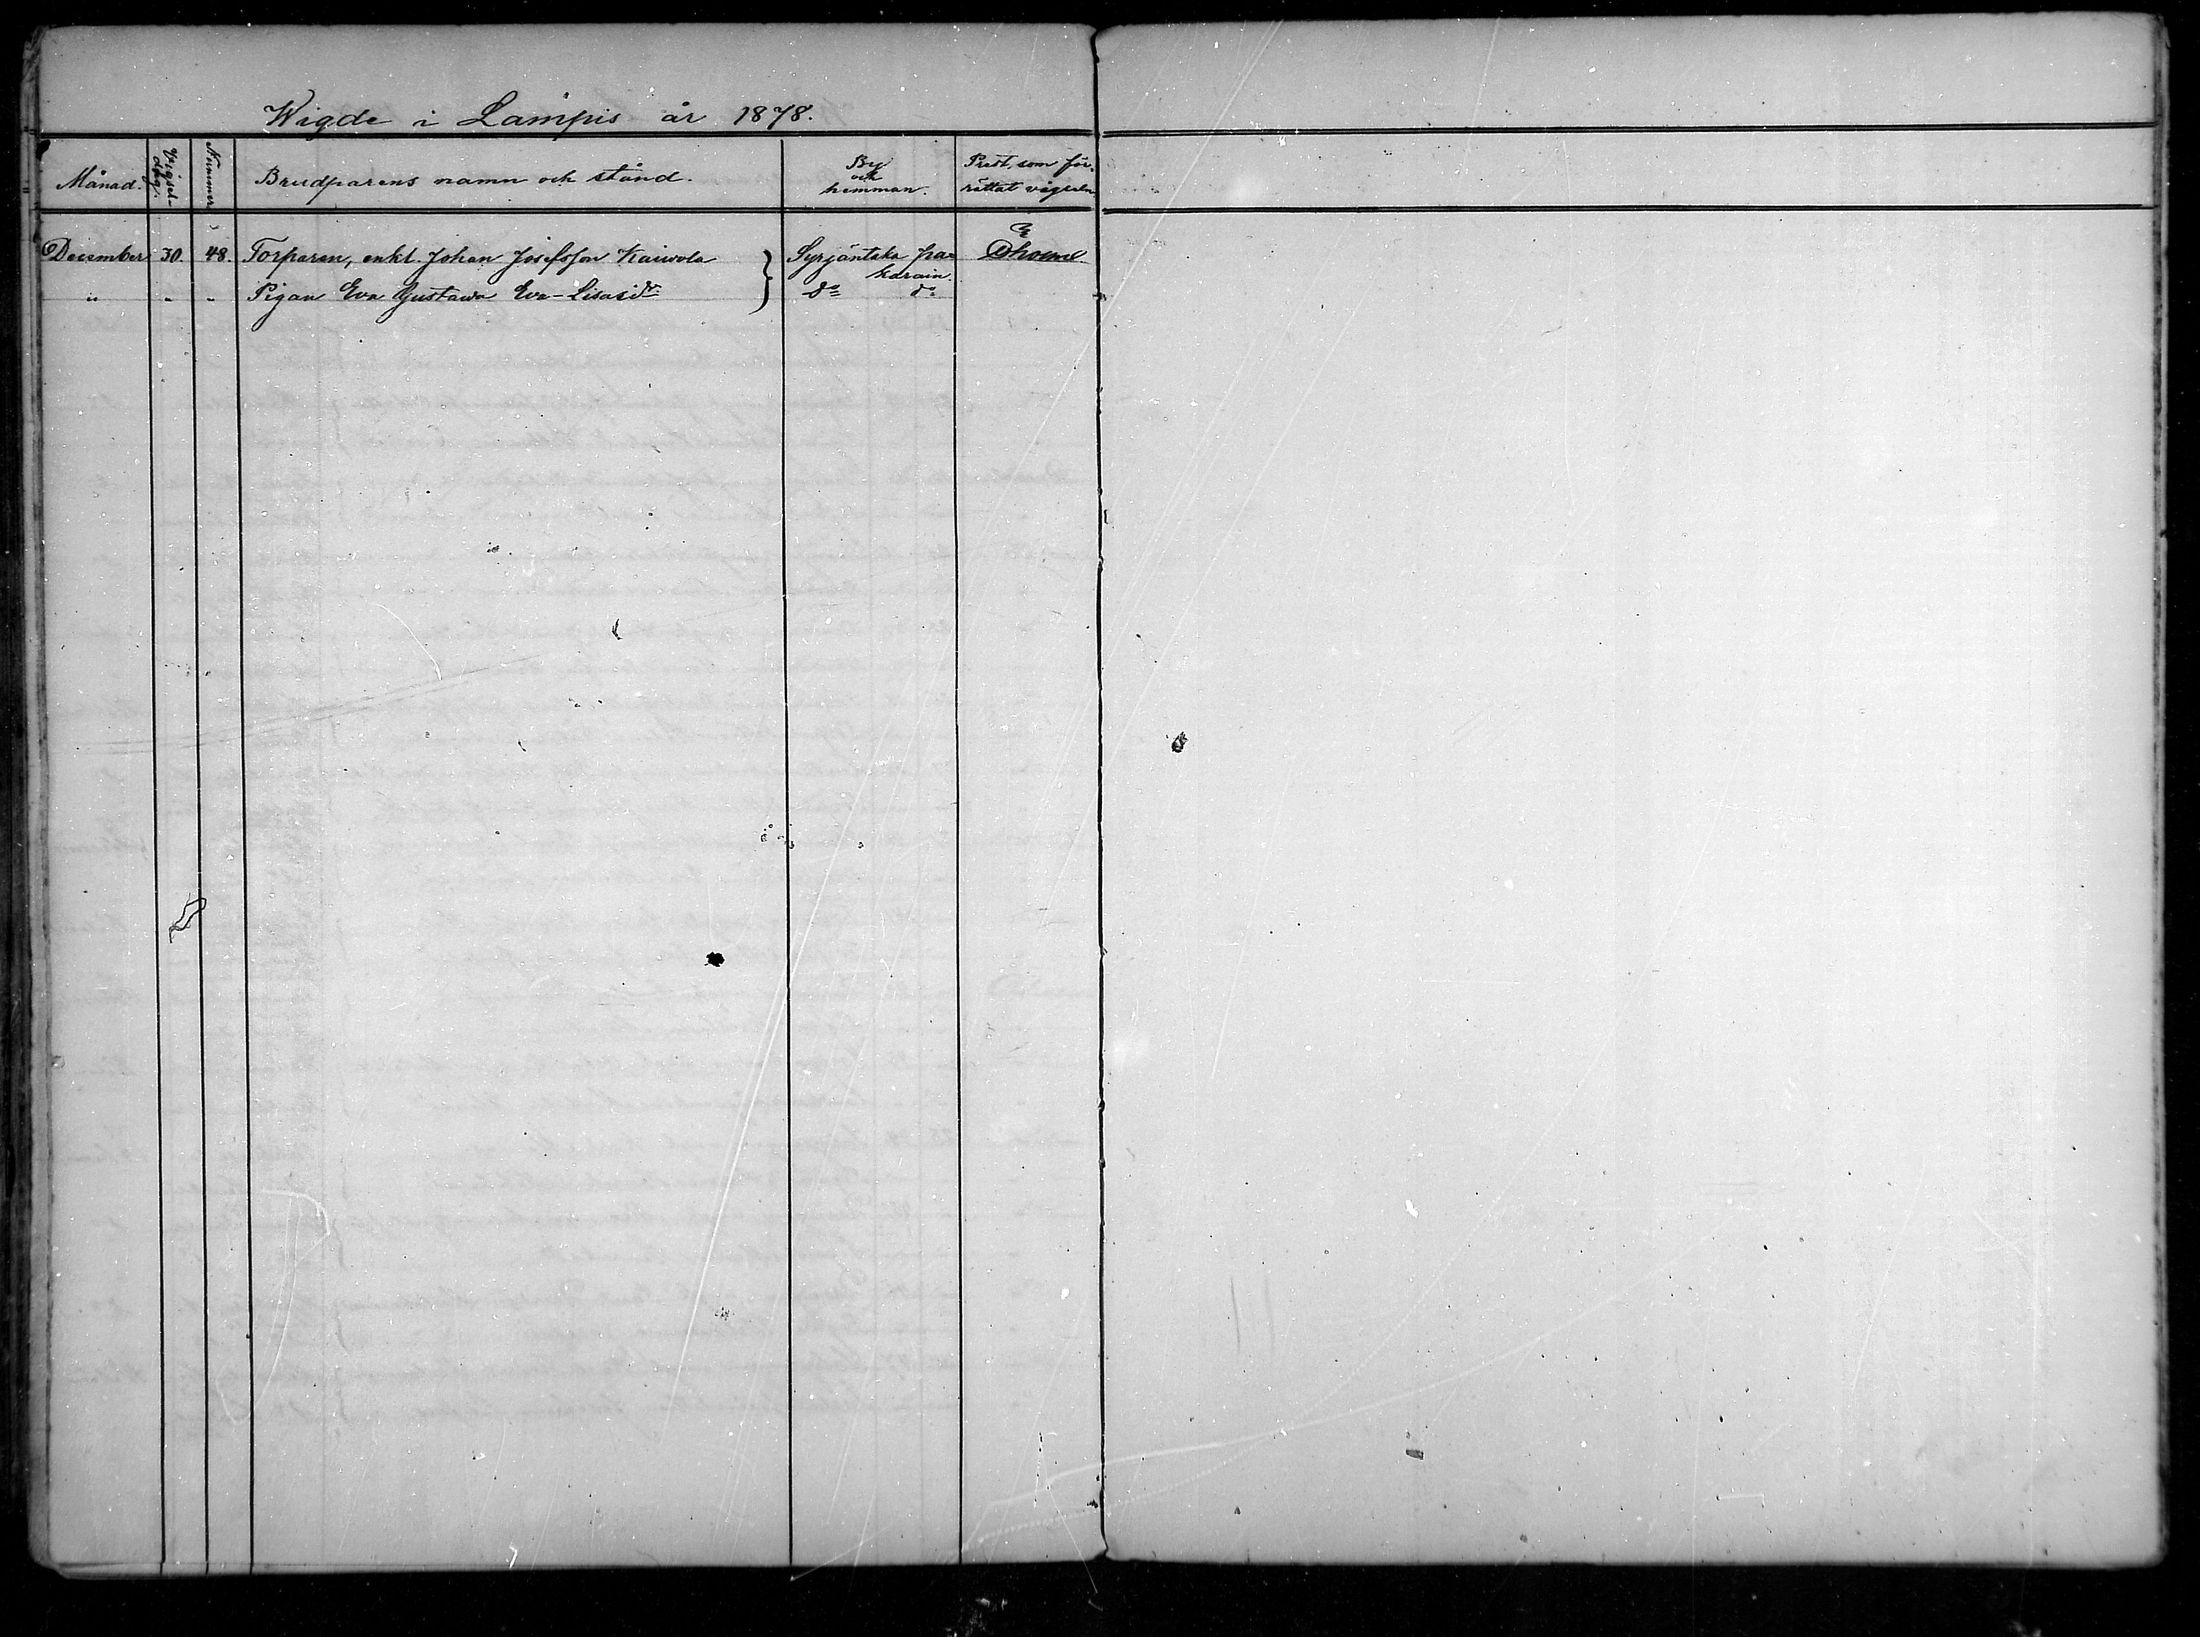 Wigde i Lampis år 1878.
Månad. Vigsel-dag. Nummer Brudparens namn och stånd. By och hemman. Prest, som för-rättat vigseln
December 30. 48. Torparen, enkl. Johan Josefsson Kaiwola Syrjäntaka
" " " Pigan Eva Gustawa Eva-Lisasdr do do